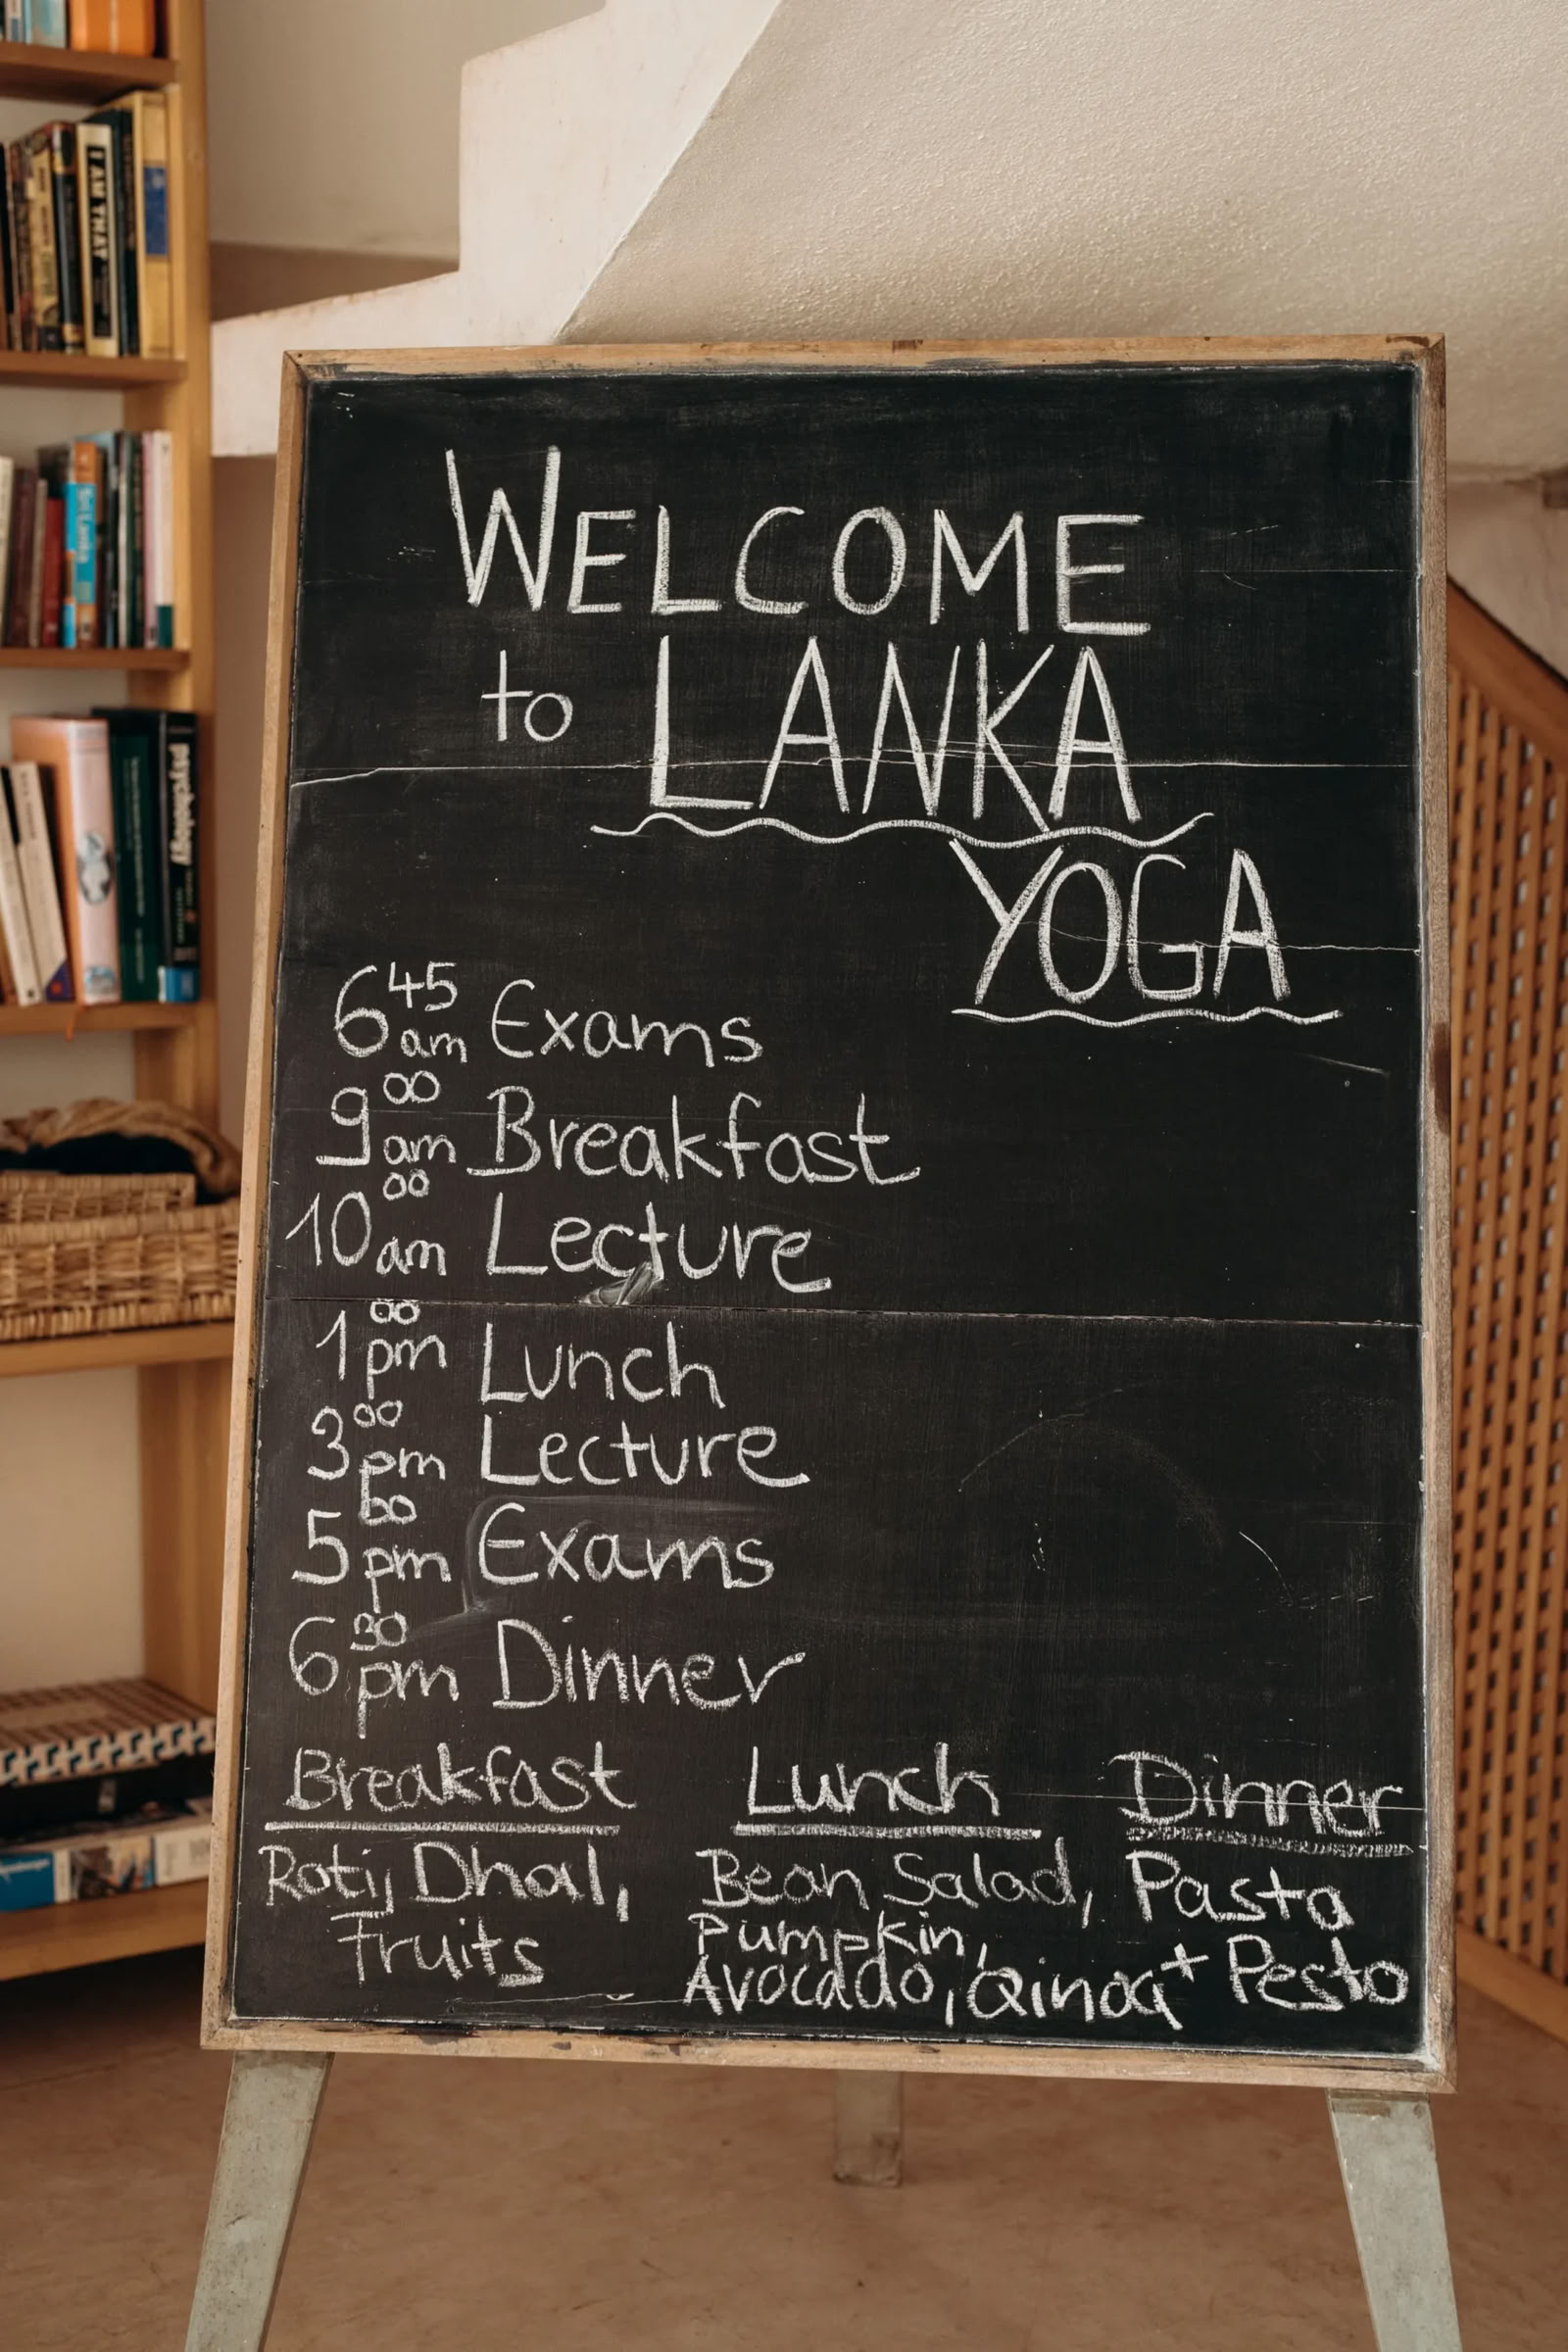 WELCOME
to LANKA
YOGA
6 45 am Exams
9 00 am Breakfast
10 00 am Lecture
1 00 pm Lunch
3 00 pm Lecture
5 00 pm Exams
6 30 pm Dinner
Breakfast Lunch Dinner
Roti, Dhal, Bean Salad, Pasta
Fruits Pumpkin, + Pesto
Avocado, Qinoa
I AM THAT
psychology